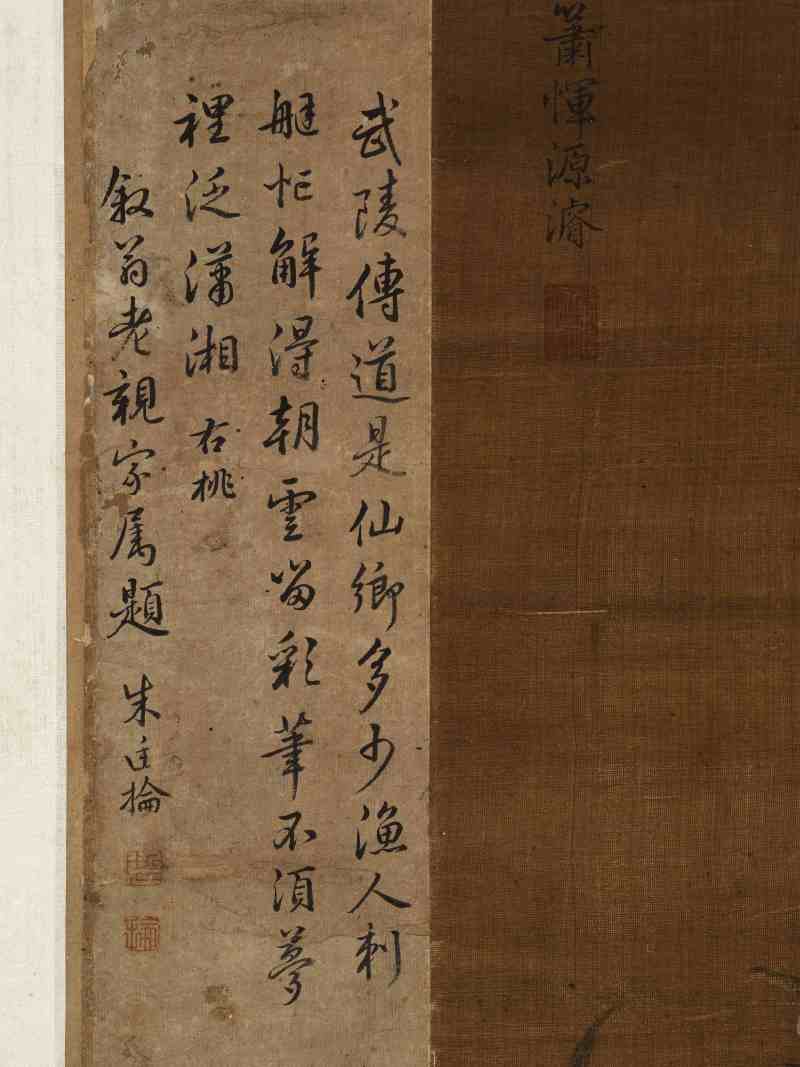 簫惲源濬
武陵傳道是仙鄉多少漁人刺
艇忙解得朝雲留彩筆不須夢
裡泛瀟湘 右桃
敘翁老親家属題 朱掄